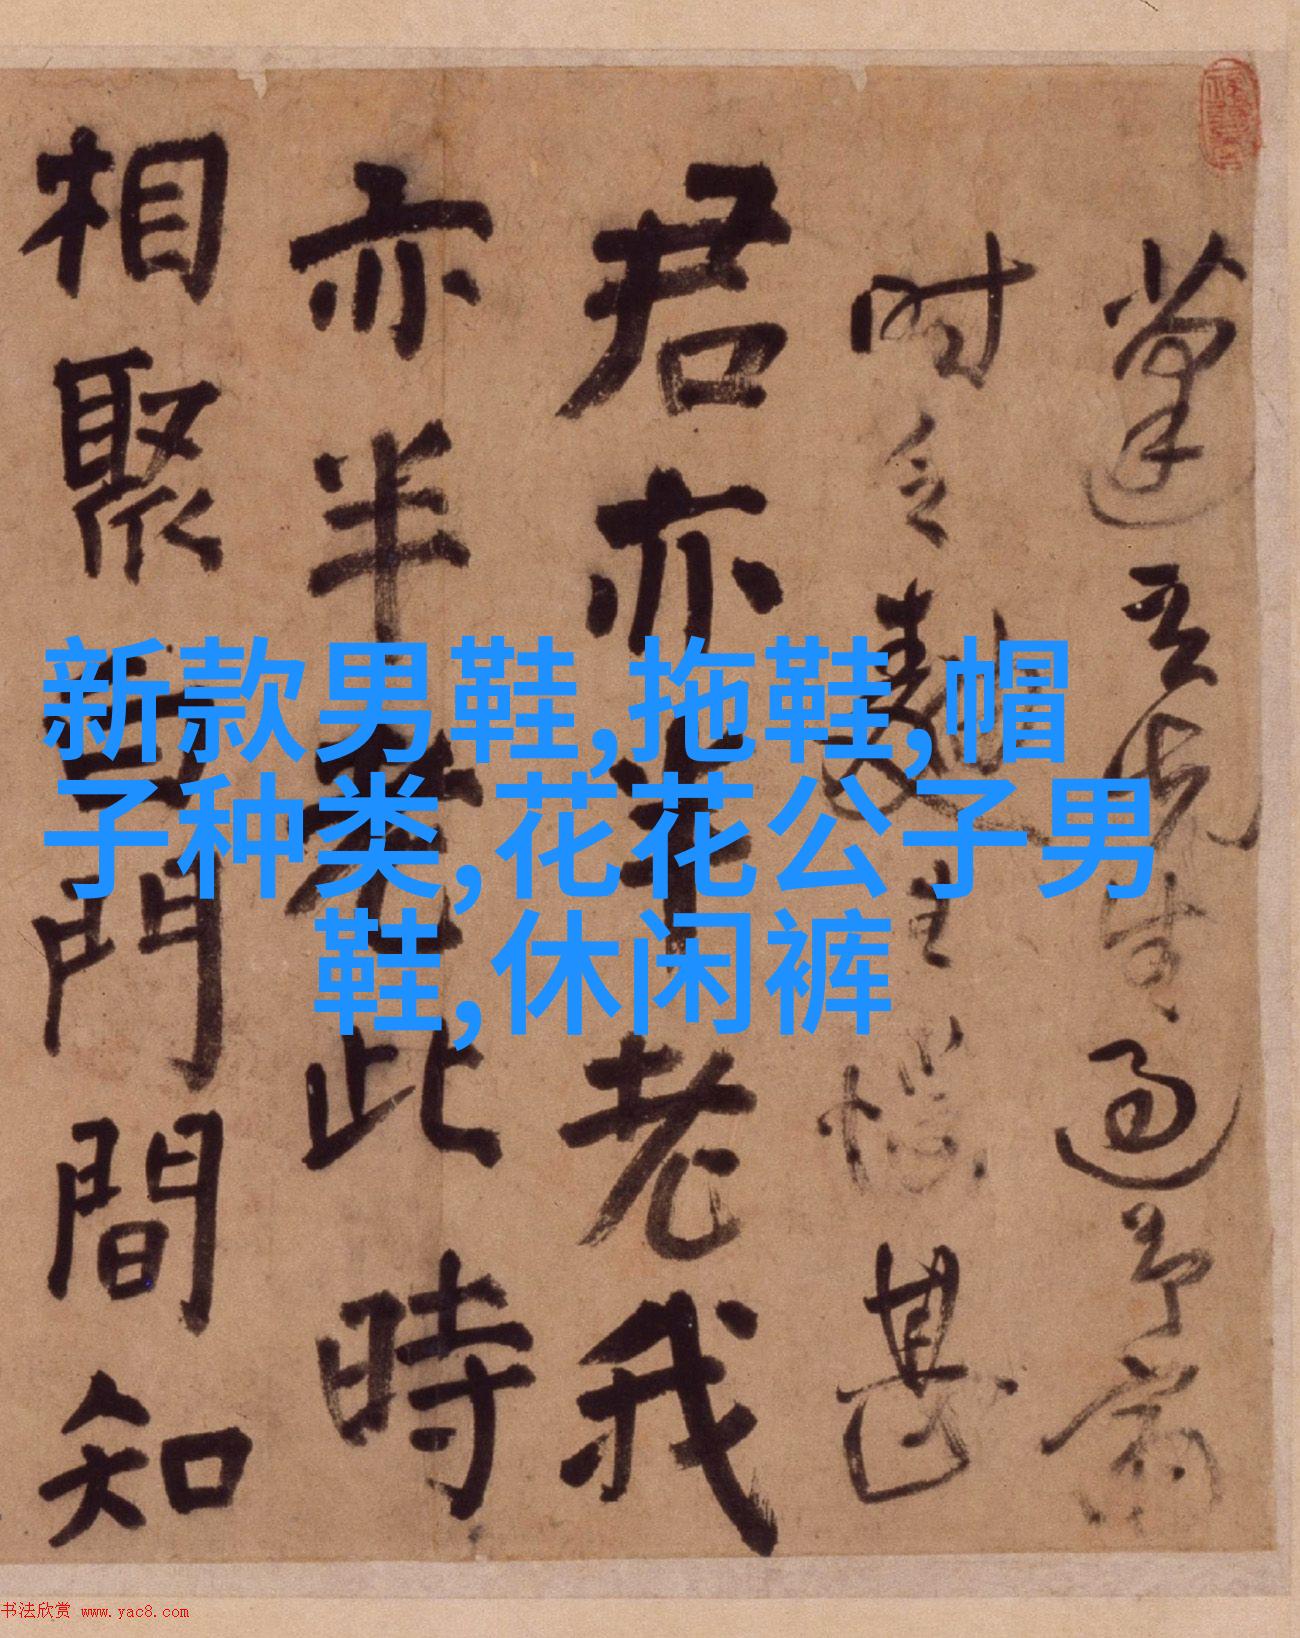 新款男鞋,拖鞋,帽
子种类,花花公子男
鞋,休闲裤
吾先生過予齋
時 主 甚
君亦半老我
亦半 此時
相聚 門間知
书法欣赏 www.yac8.com